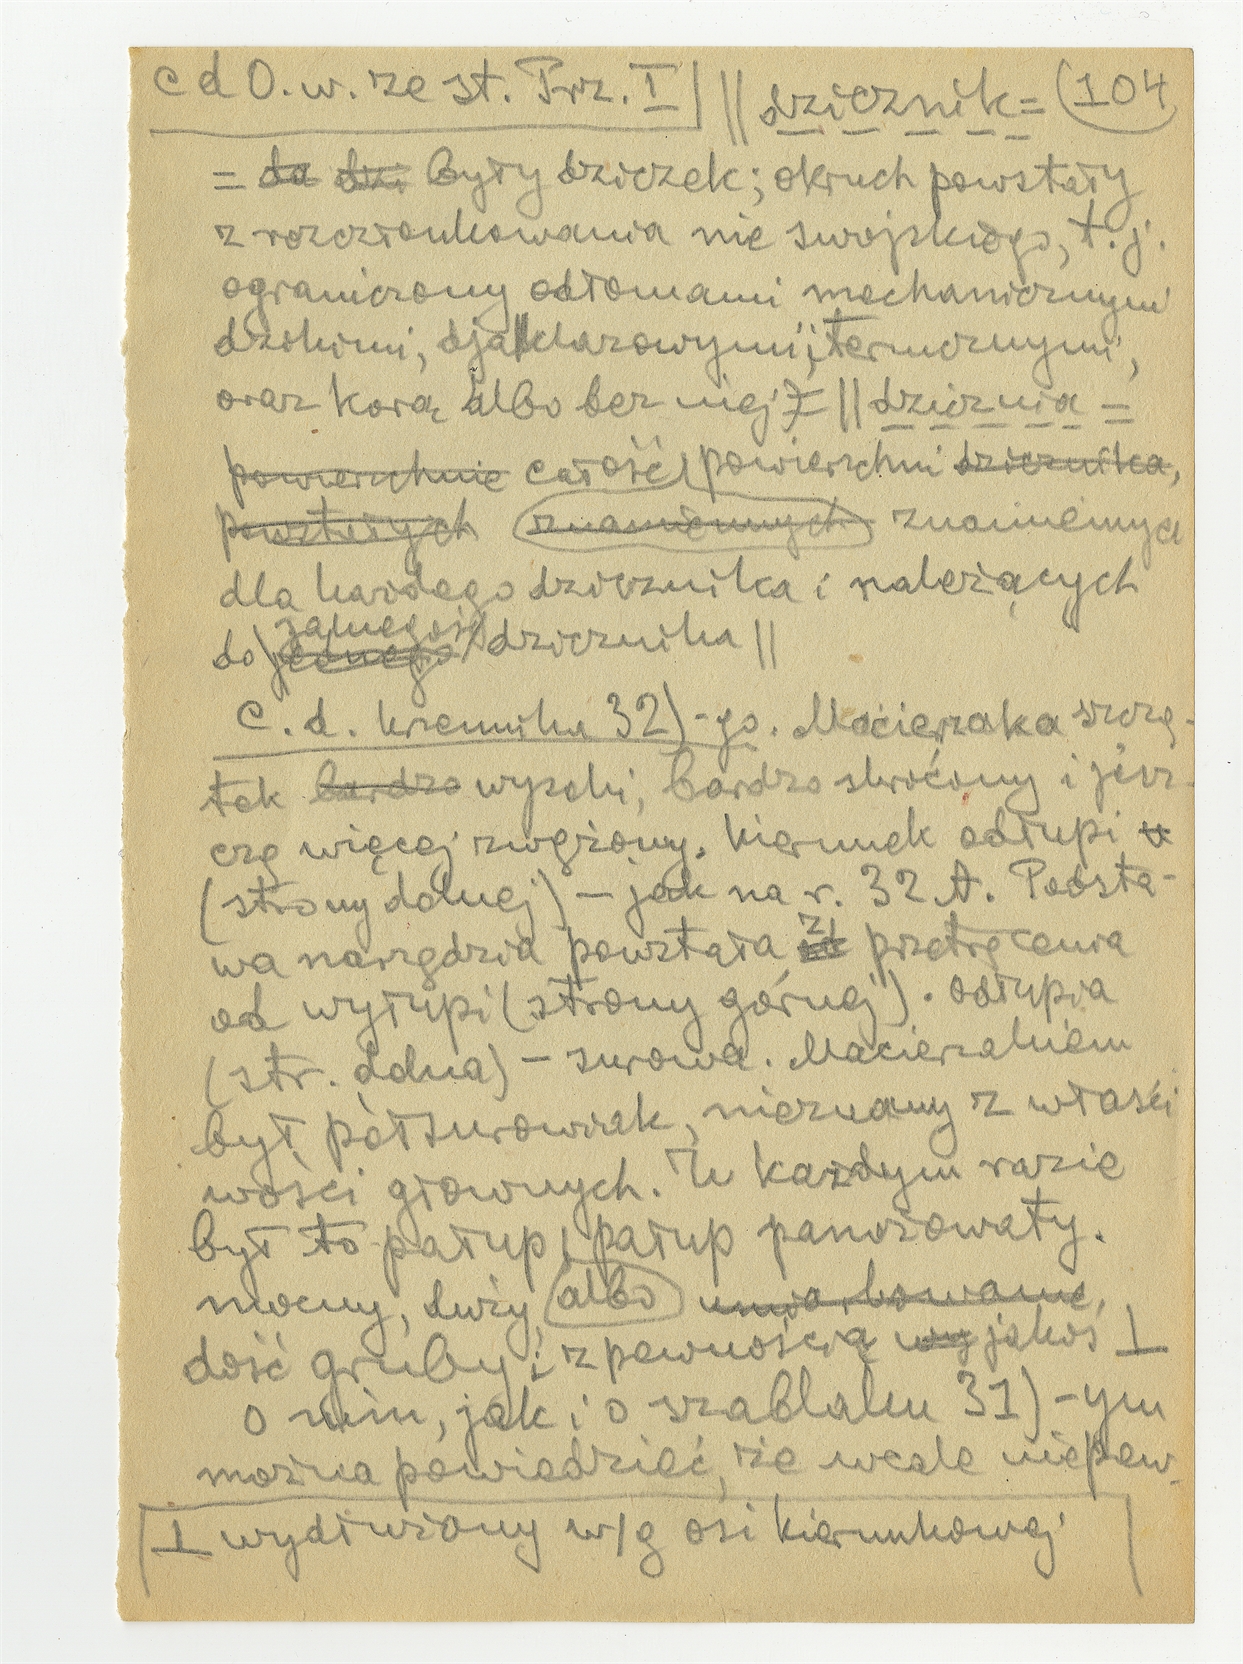 c d O. w. ze st. Prz. I || dzicznik = (104
= da dzi były dziczek; okruch powstały
z rozczłonkowania nie swojskiego, t. j.
ograniczony odłomami mechanicznymi
dzikimi, djaklazowymi, termicznymi,
oraz korą albo bez niej = || dzicznia =
powierzchnie całość powierzchni dzicznika,
powstałych znamiennych znamiennych
dla każdego dzicznika i należących
do jednego żadnegoś dzicznika ||
c. d. krzemika 32)-go. Macierzaka szczą-
tek bardzo wysoki, bardzo skrócony i jesz-
cze więcej zwężony. Kierunek odłupi
(strony dolnej) – jak na r. 32 A. Podsta-
wa narzędzia powstała z przetrącenia
od wyłupi (strony górnej). Odłupia
(str. dolna) – surowa. Macierzakiem
był półsurowiak, nieznany z właści
wości głownych. W każdym razie
był to pałup, pałup panożowaty.
mocny, duży, albo
dość gruby i z pewnością wy jakoś ⊥
o nim, jak i o szablaku 31)-ym
można powiedzieć, że wcale niepew-
⊥ wydłużony w/g osi kierunkowej